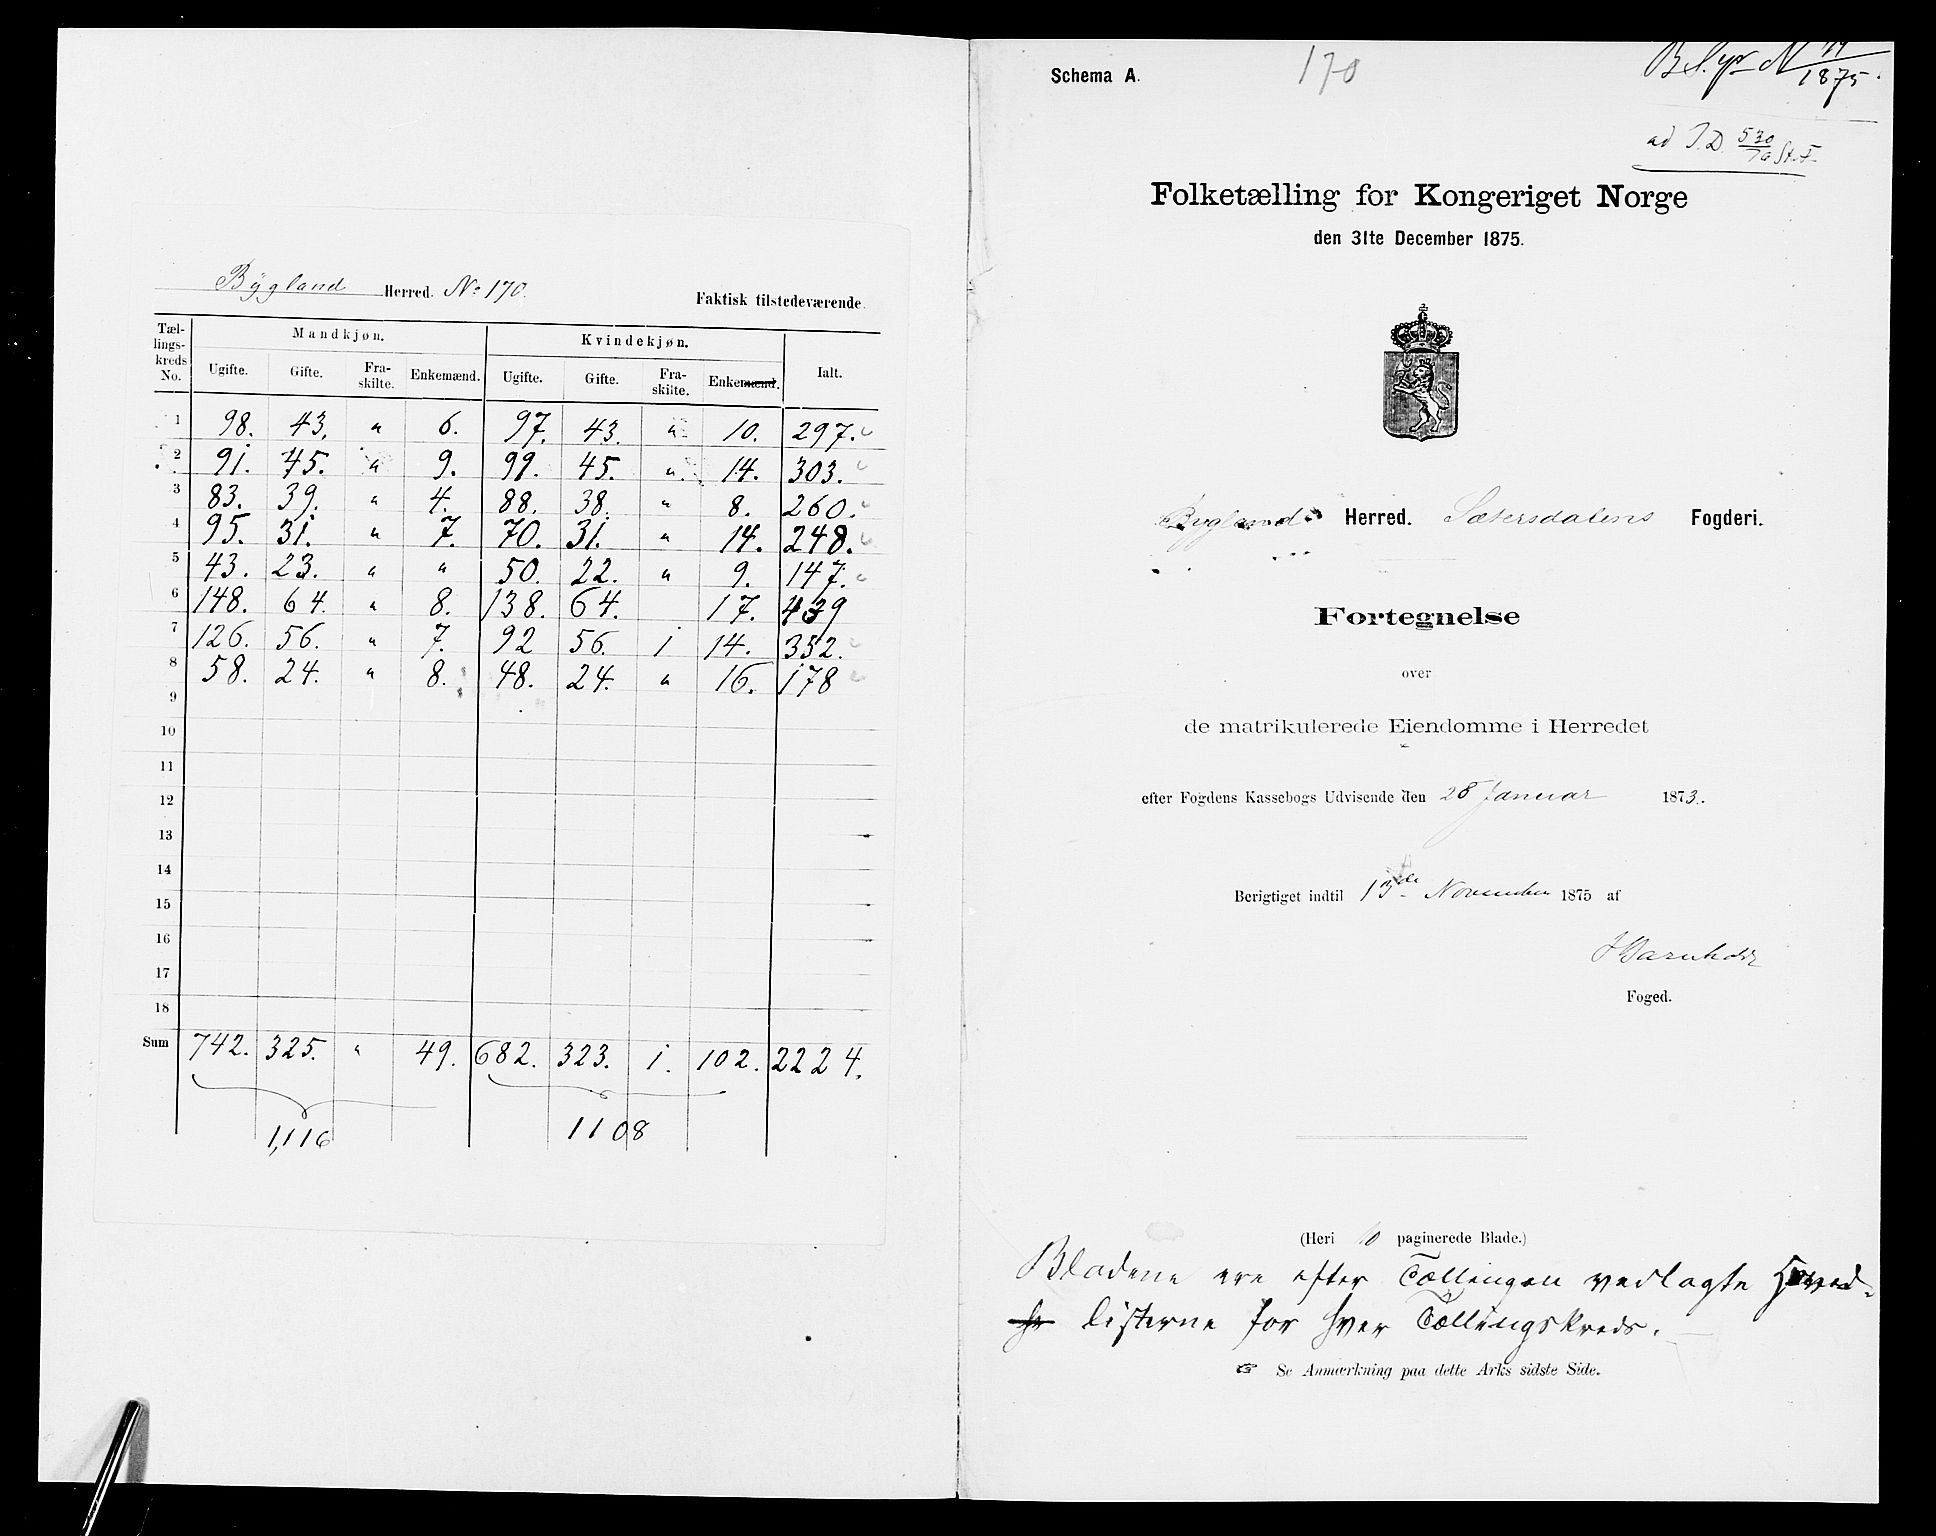 Bygland Herred. No 170.
Faktisk tilstedeværende.
Tæl-lings-kreds No. Mandkjøn. Kvindekjøn. Ialt.
Ugifte. Gifte. Fra-skilte. Enkemænd. Ugifte. Gifte. Fra-skilte. Enkemænd.
1 98. 43. " 6. 97. 43. " 10. 297.
2 91. 45. " 9. 99. 45. " 14. 303.
3 83. 39. " 4. 88. 38. " 8. 260.
4 95. 31. " 7. 70. 31. " 14. 248.
5 43. 23. " " 50. 22. " 9. 147.
6 148. 64. " 8. 138. 64. 17. 439
7 126. 56. " 7. 92 56. 1 14. 352.
8 58. 24. " 8. 48. 24. " 16. 178
9
10
11
12
13
14
15
16
17
18
Sum 742. 325. " 49. 682. 323. 1. 102. 2224.
1,116 1108
Schema A.
170
1875.
ad J.D. 530
Folketælling for Kongeriget Norge
den 31te December 1875.
Bygland Herred. Sætersdalens Fogderi.
Fortegnelse
over
de matrikulerede Eiendomme i Herredet
efter Fogdens Kassebogs Udvisende den 28 Januar 1873.
Berigtiget indtil 13de November 1875 af
Foged.
(Heri 10 paginerede Blade.)
Bladene ere efter Tællingen vedlagte Hoved-
listerne for hver Tællingskreds.
☞ Se Anmærkning paa dette Arks sidste Side.